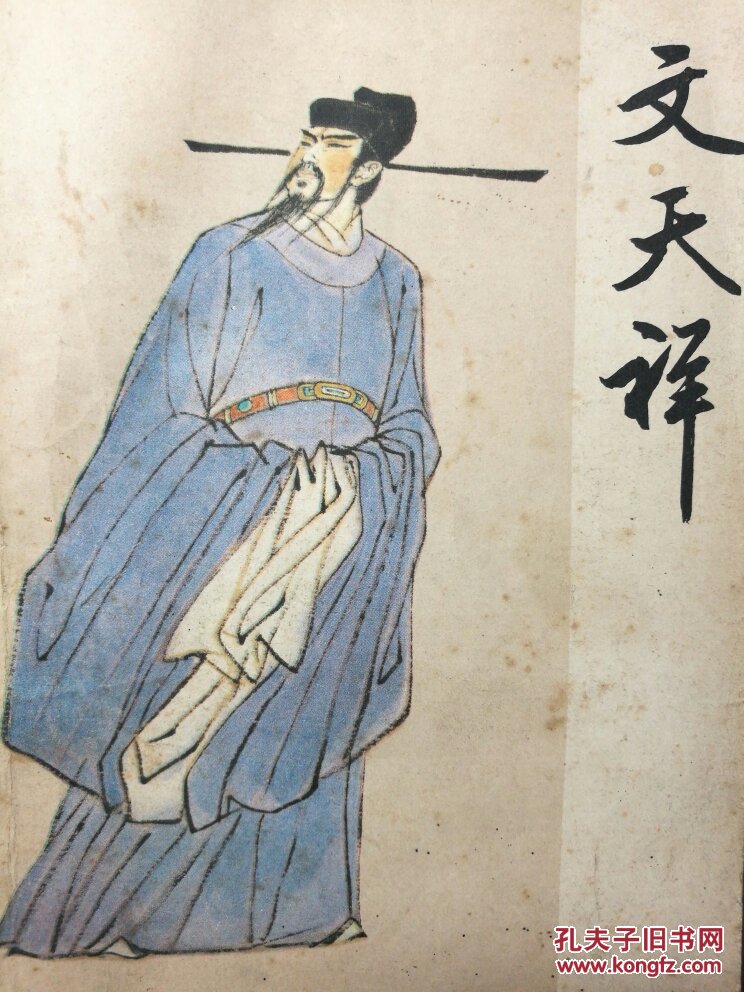 文天祥
孔夫子旧书网
www.kongfz.com